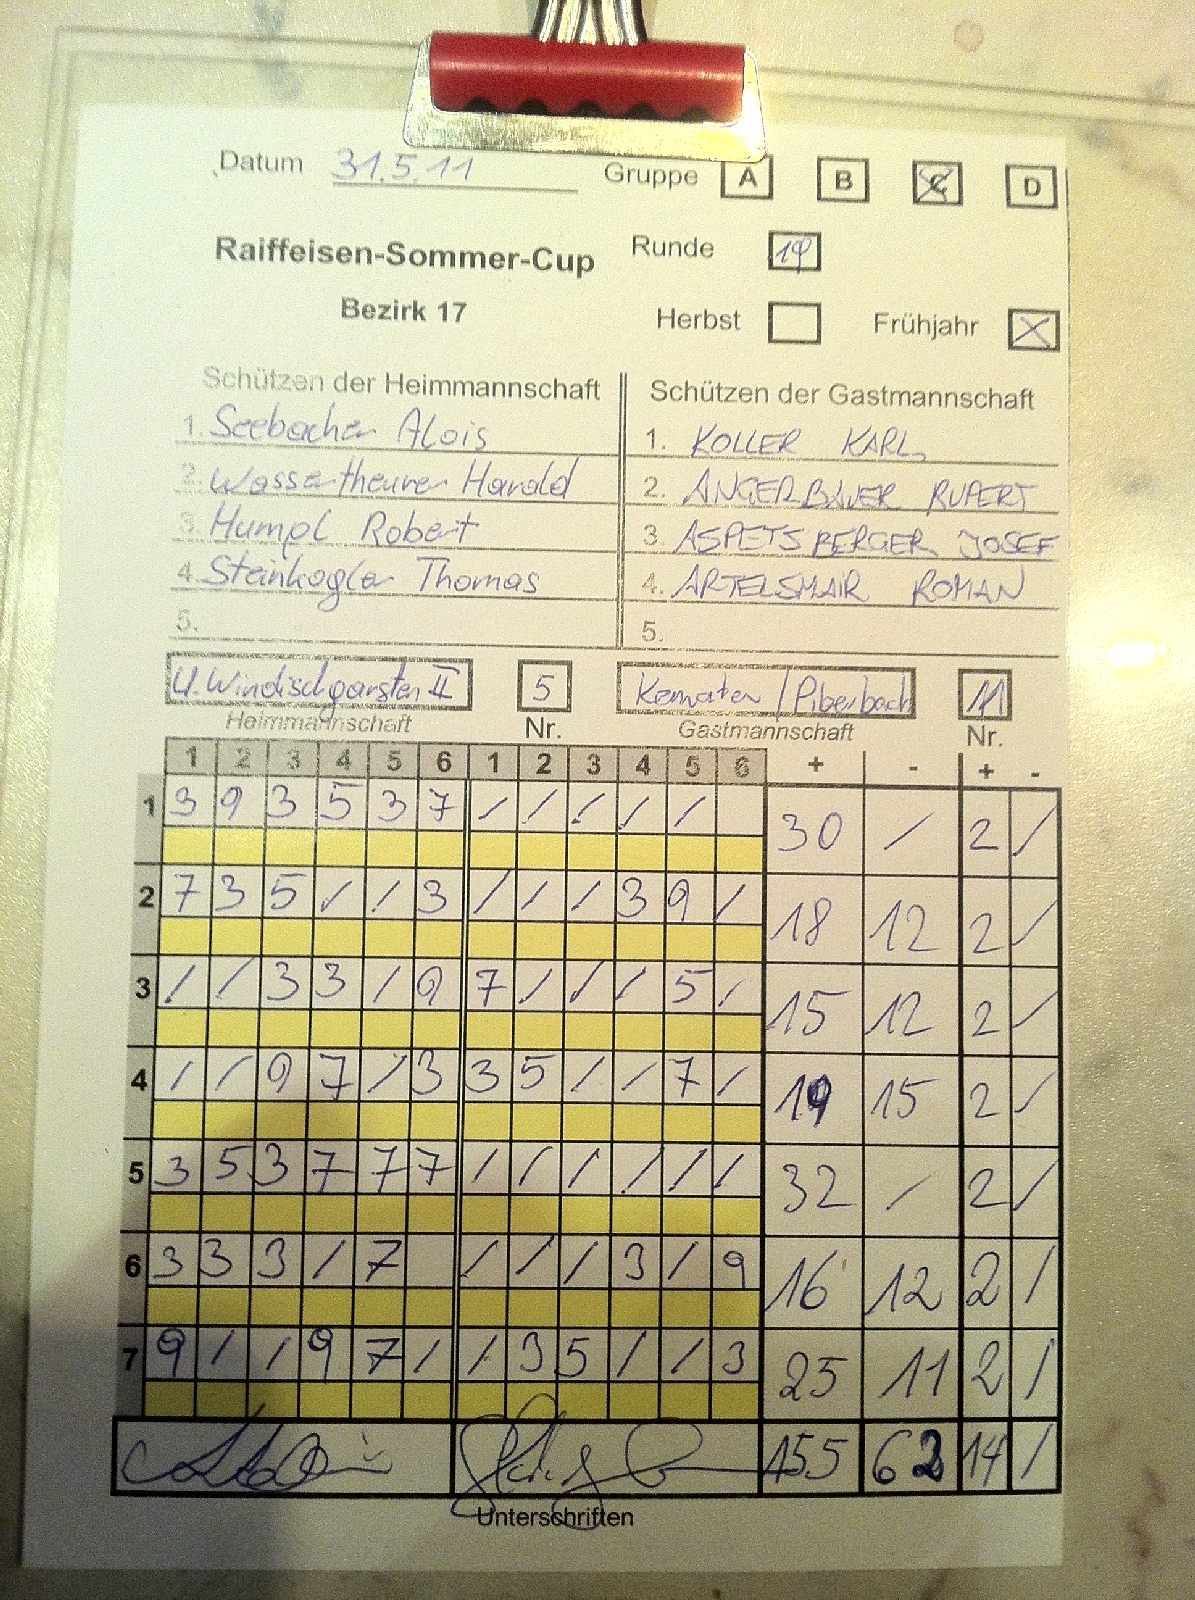 Datum 31.5.11 Gruppe A B C D
Raiffeisen-Sommer-Cup Runde
Bezirk 17 Herbst Frühjahr X
Schützen der Heimmannschaft Schützen der Gastmannschaft
1. Seebacher Alois 1. KOLLER KARL
2. Wassertheurer Harald 2. ANGERBAUER RUPERT
3. Humpl Robert 3. ASPETSBERGER JOSEF
4. Steinkogler Thomas 4. ARTELSMAIR ROMAN
5. 5.
U. Windischgarsten II 5 Kematen / Piberbach 11
Heimmannschaft Nr. Gastmannschaft Nr.
1 2 3 4 5 6 1 2 3 4 5 6 + - + -
1 3 9 3 5 3 7 / / / / / 30 / 2 /
2 7 3 5 / / 3 / / / 3 9 / 18 12 2 /
3 / / 3 3 / 9 7 / / / 5 / 15 12 2 /
4 / / 9 7 / 3 3 5 / / 7 / 19 15 2 /
5 3 5 3 7 7 7 / / / / / / 32 / 2 /
6 3 3 3 / 7 / / / 3 / 9 16 12 2 /
7 9 / / 9 7 / / 3 5 / / 3 25 11 2 /
155 62 14 /
Unterschriften